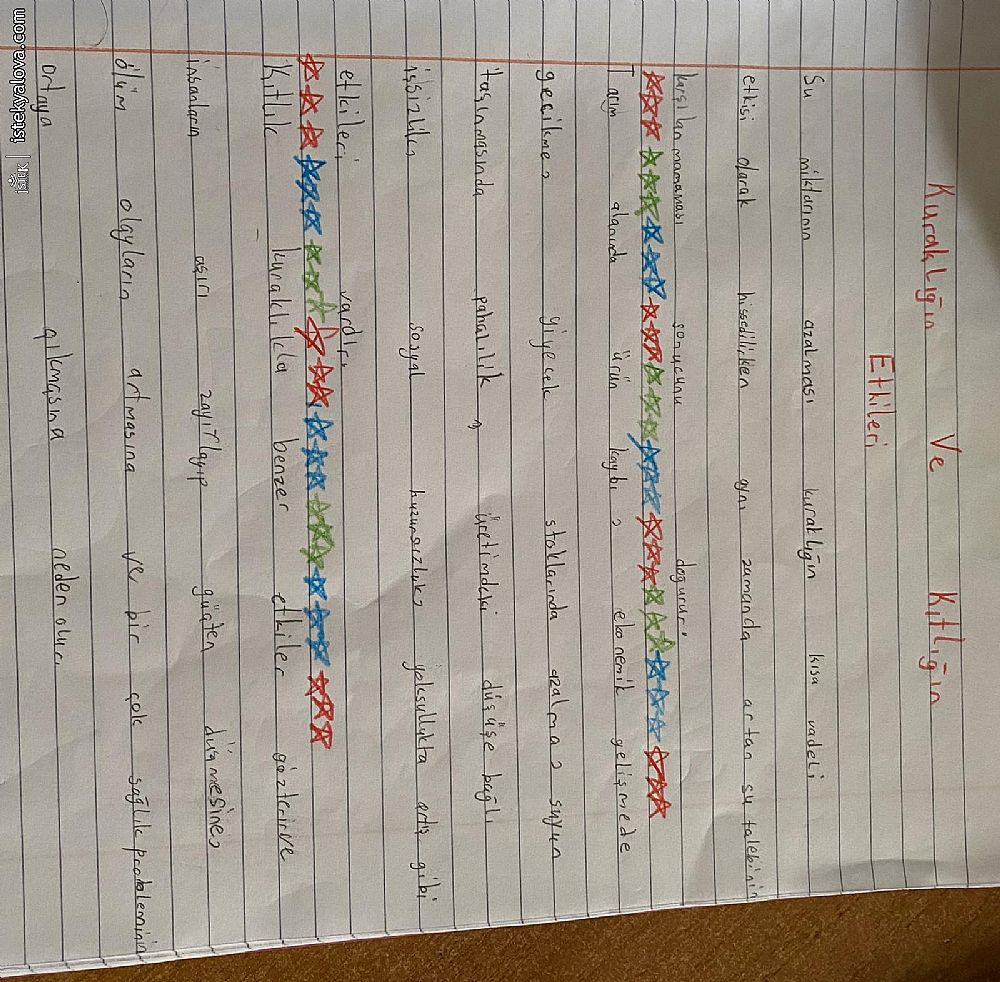 Kuraklığın Ve Kıtlığın
Etkileri
Su miktarının azalması kuraklığın kısa vadeli
etkisi olarak hissedilirken aynı zamanda artan su talebinin
karşılanmaması sonucunu doğurur.
Tarım alanında ürün kaybı, ekonemik gelişmede
gecikme, yiyecek stoklarında azalma, suyun
taşınmasında pahalılık, üretimdeki düşüşe bağlı
işsizlik, sosyal huzursuzluk, yoksullukta artış gibi
etkileri vardır.
Kıtlık kuraklıkla benzer etkiler gözterirve
insanların aşırı zayıflayıp güçten düşmesine,
ölüm olayların artmasına ve bir çok sağlık probleminin
ortaya çıkmasına neden olur.
iSTEK | istekyalova.com